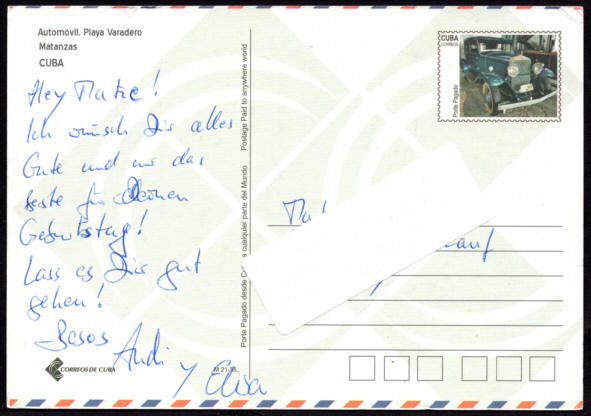 Automóvil. Playa Varadero
Matanzas
CUBA
Hey Matze!
Ich wünsch Dir alles
Gute und nur das
Beste für Deinen
Geburtstag!
Lass es Dir gut
gehen!
Besos
Andi
y Elisa
CORREOS DE CUBA
M 21-35
Porte Pagado desde C
a cualquier parte del Mundo
Postage Paid to anywhere world
CUBA
CORREOS
Porte Pagado
Ma
auf